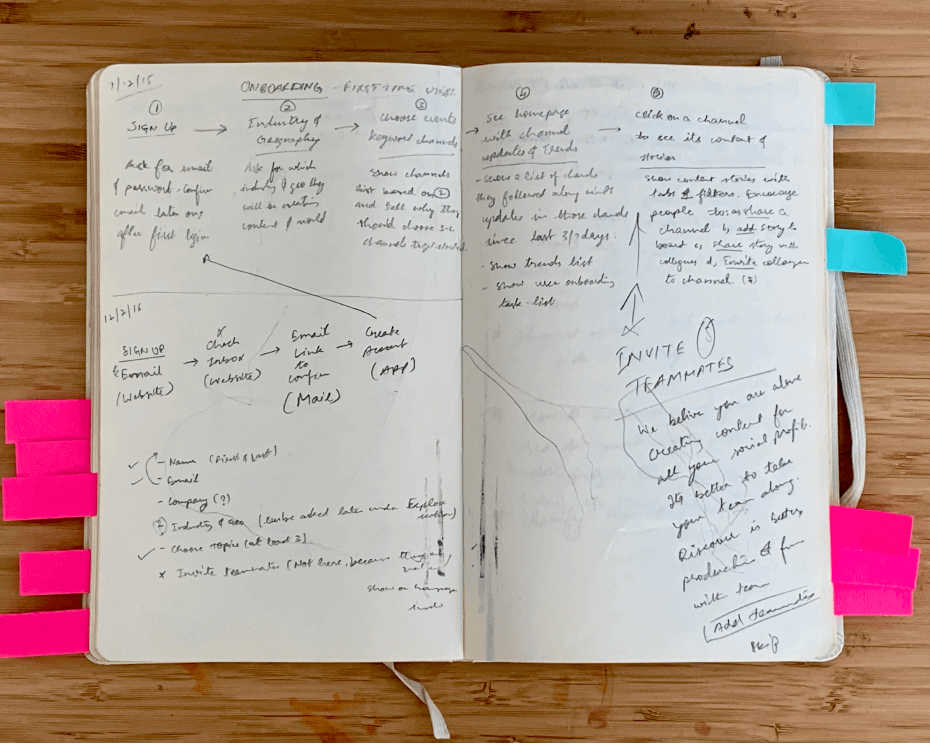 1/12/15
ONBOARDING - FIRST TIME USER
①
SIGN UP →
Ask for email
& password - confirm
email later on,
after first login
②
Industry &
Geography →
Ask for which
industry & geo they
will be creating
content & world
③
Choose
keyword channels →
Show channels
list based on ②
and tell why they
should choose
channels to get started
④
See homepage
with channel
updates & Trends →
- Show a list of
they followed along with
updates in those
since last 3/7 days.
- Show trends list
- Show user onboarding
task-list
⑤
Click on a channel
to see its content &
stories
Show content stories with
tabs & filters. Encourage
people to a, share a
channel b, add story to
board c, share story with
collegues d, Invite collegues
to channel.
12/2/16
SIGN UP
Email
(Website)
→ Check
Inbox
(Website)
→ Email
Link
to
confirm
(Mail)
→ Create
Account
(APP)
✓ - Name (First & Last)
✓ - Email
- Company (?)
② Industry & Geo (will be asked later under Explore
section)
✓ - Choose Topics (at least 3)
x Invite teammates (Not here, because they
show on homepage
INVITE
TEAMMATES
We belive you are alone
Creating content for
all your social profile.
Its better to take
your team along.
Discover is better
productive & fun
with team
Add teammates
Skip